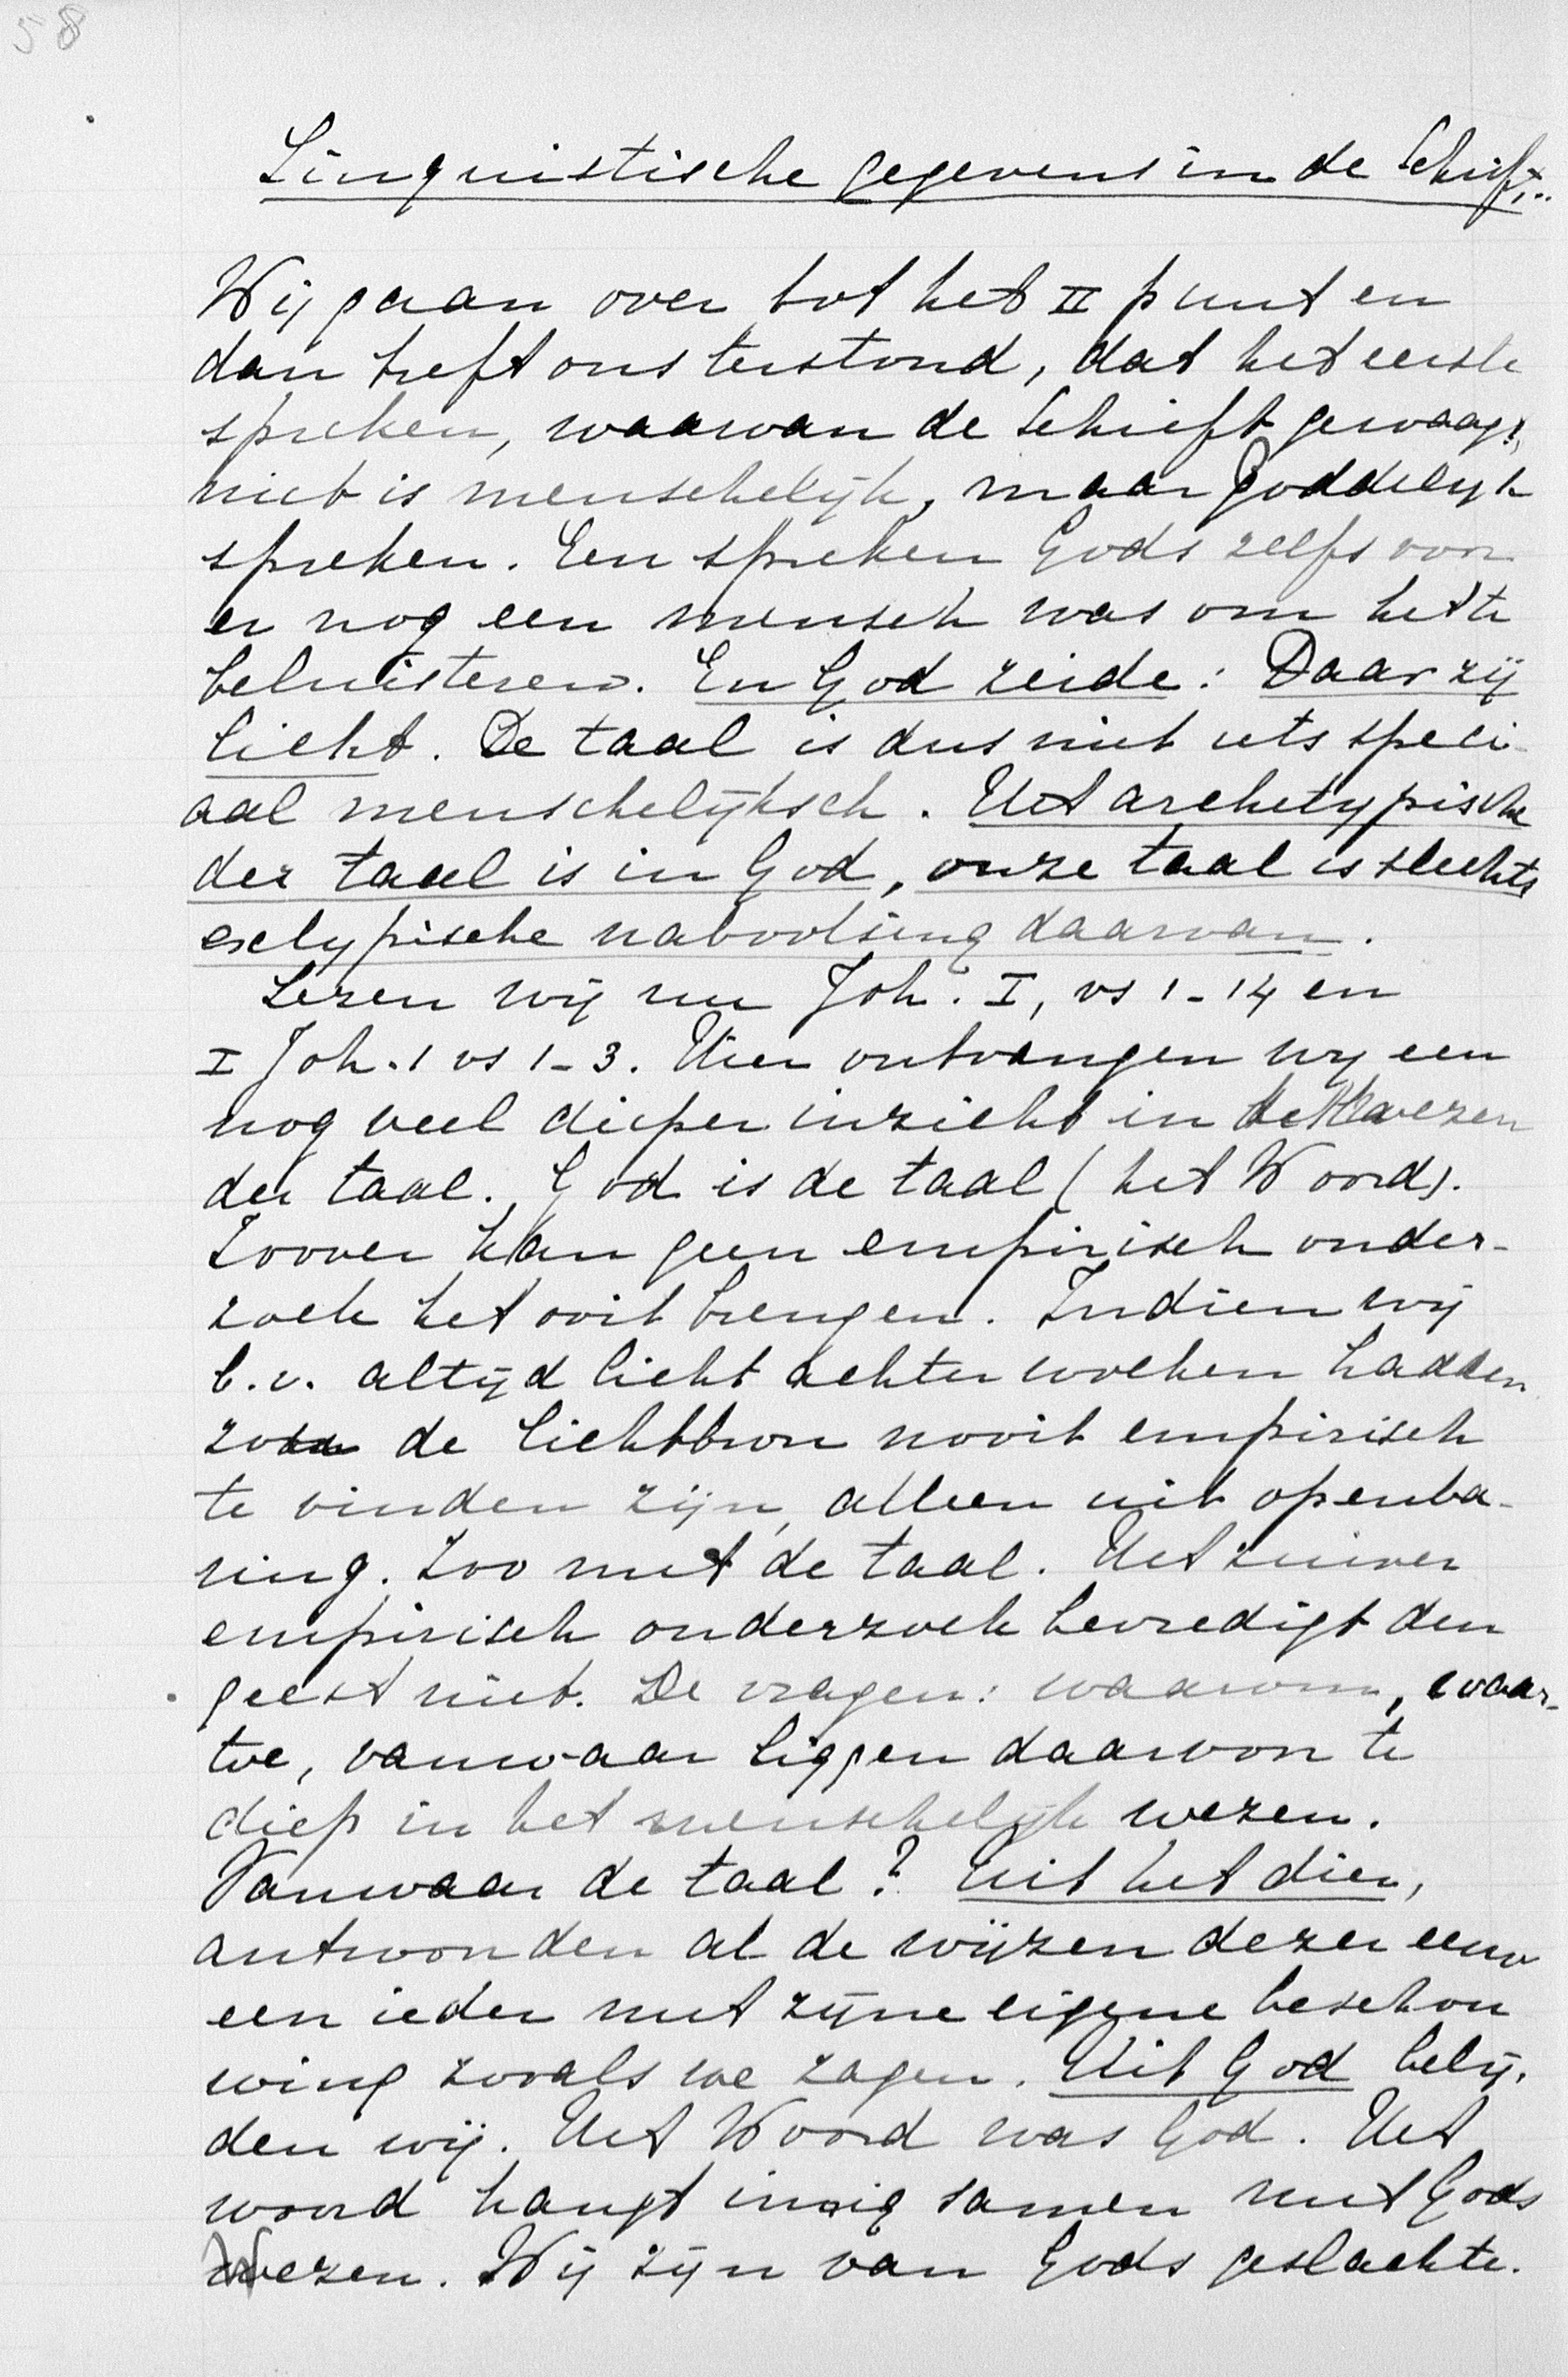 58
Linguistische gegevens in de Schrift..
Wij gaan over tot het II punt en
dan treft ons terstond, dat het eerste
spreken, waarvan de Schrift gewaagt,
niet is menschelijk, maar Goddelijk
spreken. Een spreken Gods zelfs voor
er nog een mensch was om het te
beluisteren. En God zeide: Daar zij
licht. De taal is dus niet iets speci-
aal menschelijksch. Het archetypische
der taal is in God, onze taal is slechts
ectypische nabootsing daarvan.
Lezen wij nu Joh. I, vs 1-14 en
I Joh. 1 vs 1-3. Hier ontvangen wij een
nog veel dieper inzicht in het wezen
der taal. God is de taal (het Woord).
Zoover kan geen empirisch onder-
zoek het ooit brengen. Indien wij
b.v. altijd licht achter wolken hadden
zou de lichtbron nooit empirisch
te vinden zijn, alleen uit openba-
ring. Zoo met de taal. Het zuiver
empirisch onderzoek bevredigt den
geest niet. De vragen: waarom, waar-
toe, vanwaar liggen daarvoor te
diep in het menschelijk wezen.
Vanwaar de taal? Uit het dier,
antwoorden al de wijzen dezer eeuw
een ieder met zijne eigene beschou
wing zooals we zagen. Uit God belij-
den wij. Het Woord was God. Het
woord hangt innig samen met Gods
Wezen. Wij zijn van Gods geslachte.